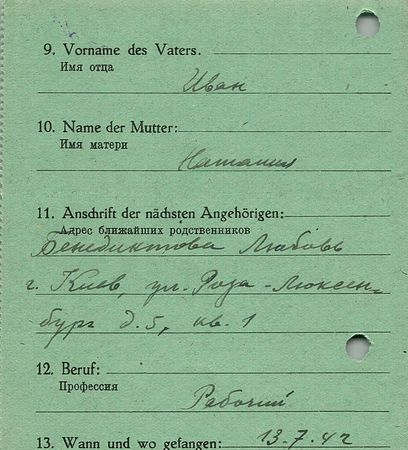 9. Vorname des Vaters.
Имя отца
Иван
10. Name der Mutter:
Имя матери
Наталия
11. Anschrift der nächsten Angehörigen:
Адрес ближайших родственников
Бенедиктова Любовь
г. Киев, ул. Роза-Люксен-
бург д. 5, кв. 1
12. Beruf:
Профессия
Рабочий
13. Wann und wo gefangen: 13.7.42